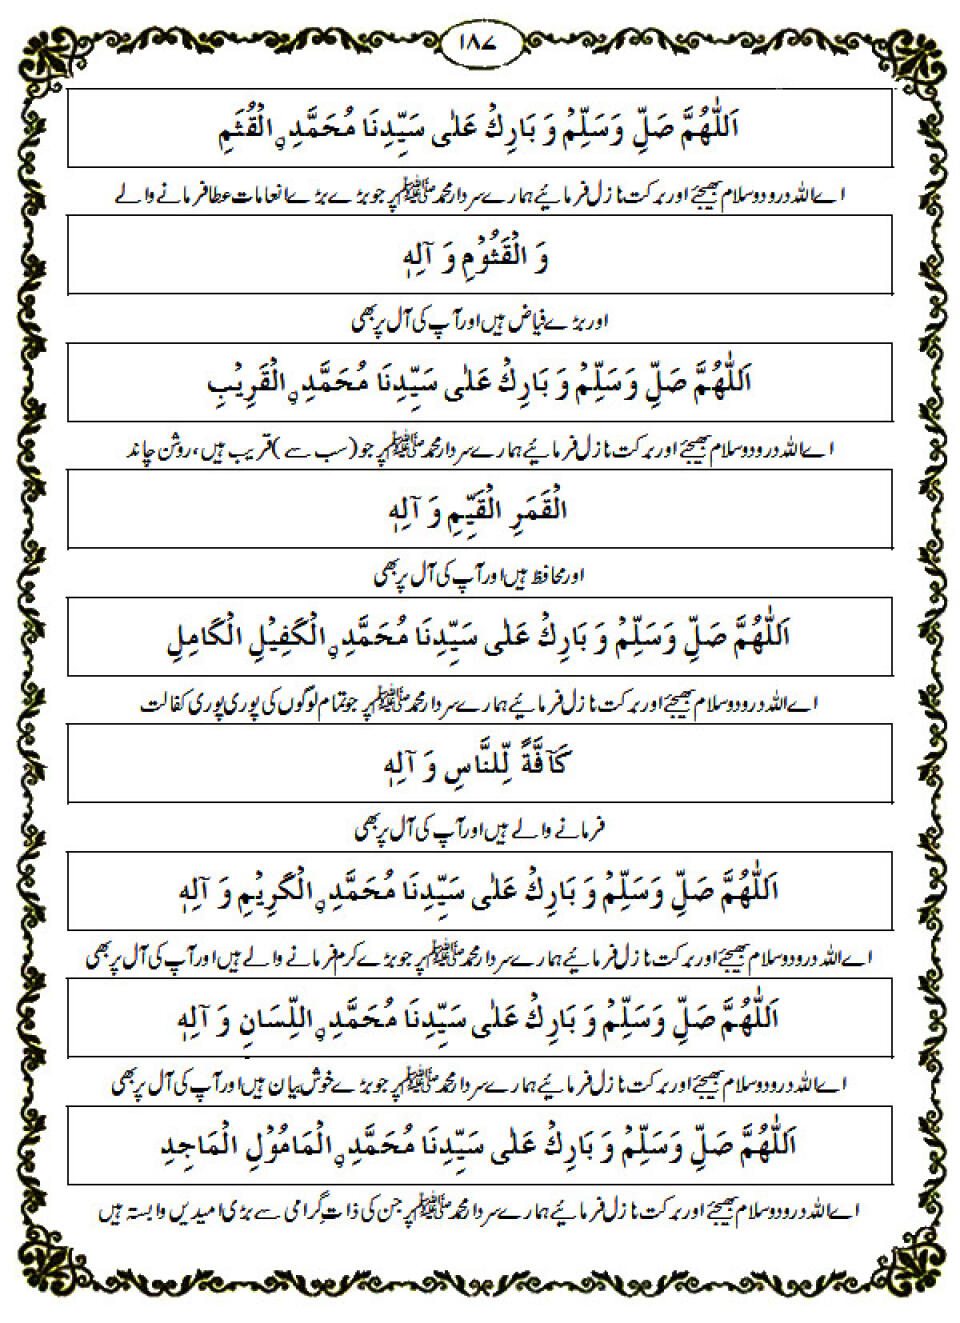 ۱۸۷
اَللّٰهُمَّ صَلِّ وَسَلِّمْ وَ بَارِكْ عَلٰى سَيِّدِنَا مُحَمَّدِ ࣙالْقُثَمِ
اے اللہ درود و سلام بھیجئے اور برکت نازل فرمائیے ہمارے سردار محمد ﷺ پر جو بڑے بڑے انعامات عطا فرمانے والے
وَ الْقَثُوْمِ وَ آلِهٖ
اور بڑے فیاض ہیں اور آپ کی آل پر بھی
اَللّٰهُمَّ صَلِّ وَسَلِّمْ وَ بَارِكْ عَلٰى سَيِّدِنَا مُحَمَّدِ ࣙالْقَرِيْبِ
اے اللہ درود و سلام بھیجئے اور برکت نازل فرمائیے ہمارے سردار محمد ﷺ پر جو (سب سے) قریب ہیں، روشن چاند
الْقَمَرِ الْقَيِّمِ وَ آلِهٖ
اور محافظ ہیں اور آپ کی آل پر بھی
اَللّٰهُمَّ صَلِّ وَسَلِّمْ وَ بَارِكْ عَلٰى سَيِّدِنَا مُحَمَّدِ ࣙالْكَفِيْلِ الْكَامِلِ
اے اللہ درود و سلام بھیجئے اور برکت نازل فرمائیے ہمارے سردار محمد ﷺ پر جو تمام لوگوں کی پوری پوری کفالت
كَآفَّةً لِّلنَّاسِ وَ آلِهٖ
فرمانے والے ہیں اور آپ کی آل پر بھی
اَللّٰهُمَّ صَلِّ وَسَلِّمْ وَ بَارِكْ عَلٰى سَيِّدِنَا مُحَمَّدِ ࣙالْكَرِيْمِ وَ آلِهٖ
اے اللہ درود و سلام بھیجئے اور برکت نازل فرمائیے ہمارے سردار محمد ﷺ پر جو بڑے کرم فرمانے والے ہیں اور آپ کی آل پر بھی
اَللّٰهُمَّ صَلِّ وَسَلِّمْ وَ بَارِكْ عَلٰى سَيِّدِنَا مُحَمَّدِ ࣙاللِّسَانِ وَ آلِهٖ
اے اللہ درود و سلام بھیجئے اور برکت نازل فرمائیے ہمارے سردار محمد ﷺ پر جو بڑے خوش بیان ہیں اور آپ کی آل پر بھی
اَللّٰهُمَّ صَلِّ وَسَلِّمْ وَ بَارِكْ عَلٰى سَيِّدِنَا مُحَمَّدِ ࣙالْمَامُوْلِ الْمَاجِدِ
اے اللہ درود و سلام بھیجئے اور برکت نازل فرمائیے ہمارے سردار محمد ﷺ پر جن کی ذاتِ گرامی سے بڑی امیدیں وابستہ ہیں